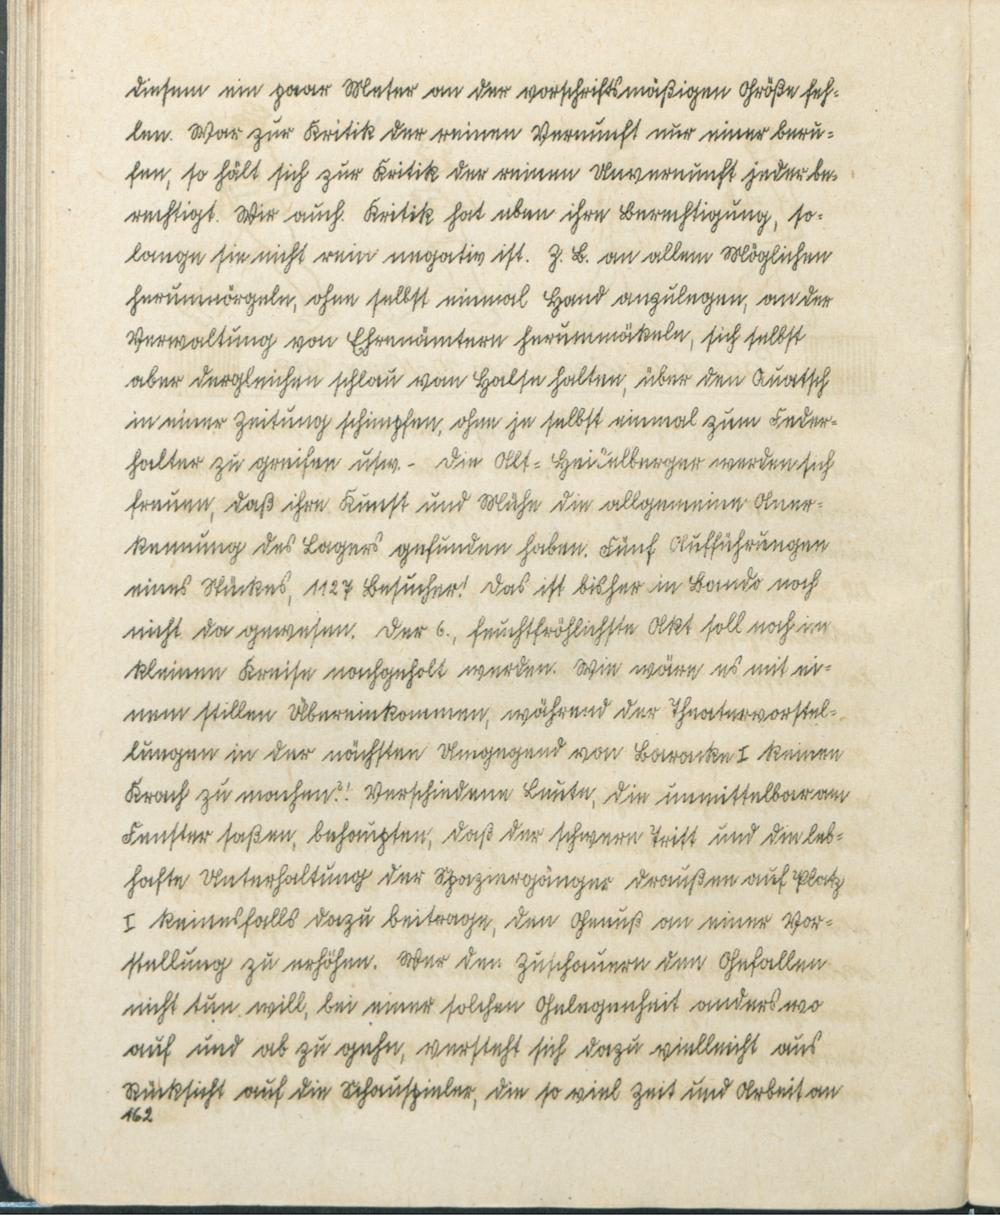 diesem ein paar Meter an der vorschriftsmäßigen Größe feh-
len. War zur Kritik der reinen Vernunft nur einer beru-
fen, so hält sich zur Kritik der reinen Unvernunft jeder be-
rechtigt. Wir auch. Kritik hat eben ihre Berechtigung, so-
lange sie nicht rein negativ ist. Z. B. an allem Möglichen
herumnörgeln, ohne selbst einmal Hand anzulegen, an der
Verwaltung von Ehrenämtern herummäkeln, sich selbst
aber dergleichen schlau vom Halse halten, über den Quatsch
in einer Zeitung schimpfen, ohne je selbst einmal zum Feder-
halter zu greifen usw. - Die Alt-Heidelberger werden sich
freuen, daß ihre Kunst und Mühe die allgemeine Aner-
kennung des Lagers gefunden haben. Fünf Aufführungen
eines Stückes, 1127 Besucher! Das ist bisher in Bando noch
nicht da gewesen. Der 6., feuchtfröhlichste Akt soll noch im
kleinen Kreise nachgeholt werden. Wie wäre es mit ei-
nem stillen Übereinkommen, während der Theatervorstel-
lungen in der nächsten Umgegend von Baracke I keinen
Krach zu machen?! Verschiedene Leute, die unmittelbar am
Fenster saßen, behaupten, daß der schwere Tritt und die leb-
hafte Unterhaltung der Spaziergänger draußen auf Platz
I keinesfalls dazu beitrage, den Genuß an einer Vor-
stellung zu erhöhen. Wer den Zuschauern den Gefallen
nicht tun will, bei einer solchen Gelegenheit anderswo
auf und ab zu gehn, versteht sich dazu vielleicht aus
Rücksicht auf die Schauspieler, die so viel Zeit und Arbeit an
162